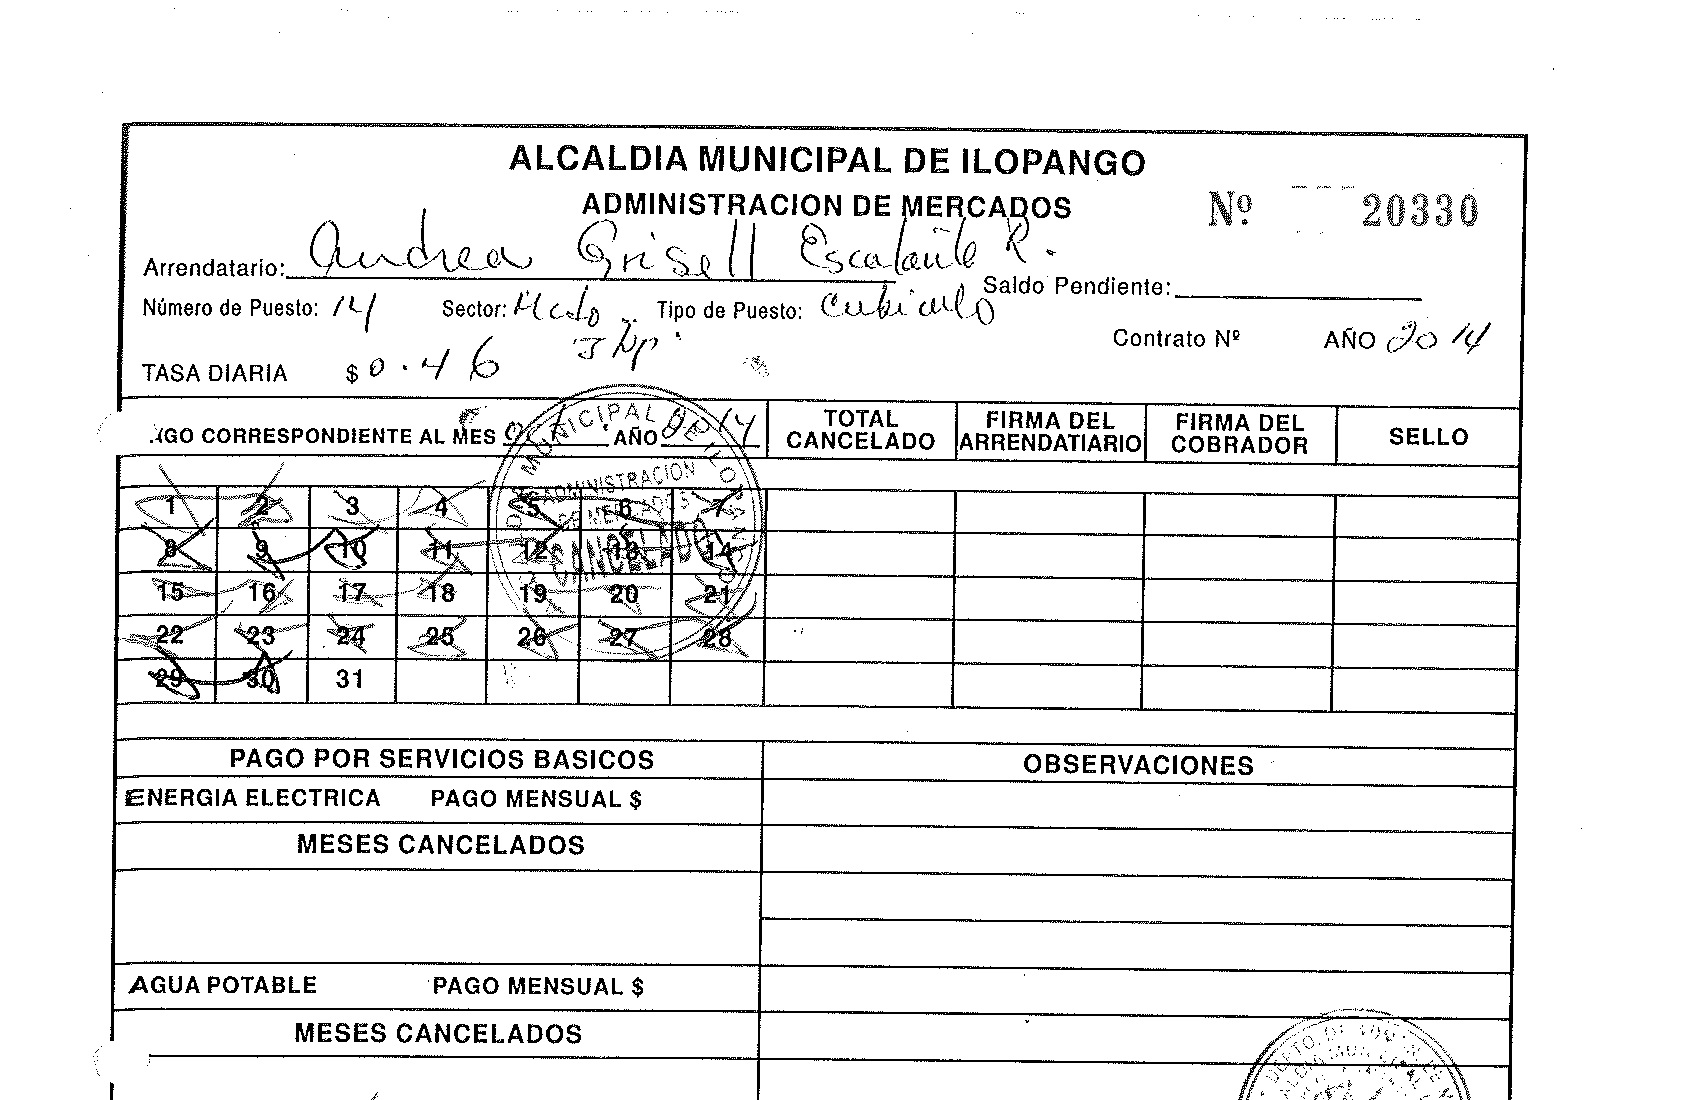 ALCALDIA MUNICIPAL DE ILOPANGO
ADMINISTRACION DE MERCADOS
Nº 20330
Arrendatario: Andrea Grisell Escalante R.
Saldo Pendiente:
Número de Puesto: 14 Sector: Mcdo Tipo de Puesto: Cubiculo
Contrato Nº AÑO 2014
TASA DIARIA $ 0.46
AGO CORRESPONDIENTE AL MES AÑO 14
TOTAL CANCELADO
FIRMA DEL ARRENDATIARIO
FIRMA DEL COBRADOR
SELLO
MUNICIPAL DE ILOPANGO
ADMINISTRACION
DE MERCADOS
CANCELADO
1 2 3 4 5 6 7
8 9 10 11 12 13 14
15 16 17 18 19 20 21
22 23 24 25 26 27 28
29 30 31
PAGO POR SERVICIOS BASICOS
OBSERVACIONES
ENERGIA ELECTRICA PAGO MENSUAL $
MESES CANCELADOS
AGUA POTABLE PAGO MENSUAL $
MESES CANCELADOS